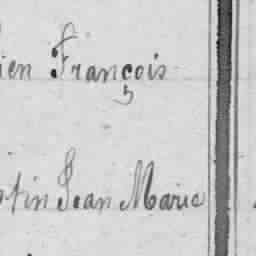 ien François
tin Jean Marie